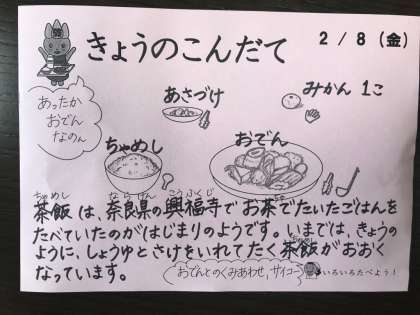 きょうのこんだて
2/8(金)
あったか
おでん
なのん
あさづけ
みかん 1こ
ちゃめし
おでん
ちゃめし ならけん こうふくじ
茶飯は、奈良県の興福寺でお茶でたいたごはんを
たべていたのがはじまりのようです。いまでは、きょうの
ように、しょうゆとさけをいれてたく茶飯がおおく
なっています。
おでんとのくみあわせ、サイコー
いろいろたべよう!